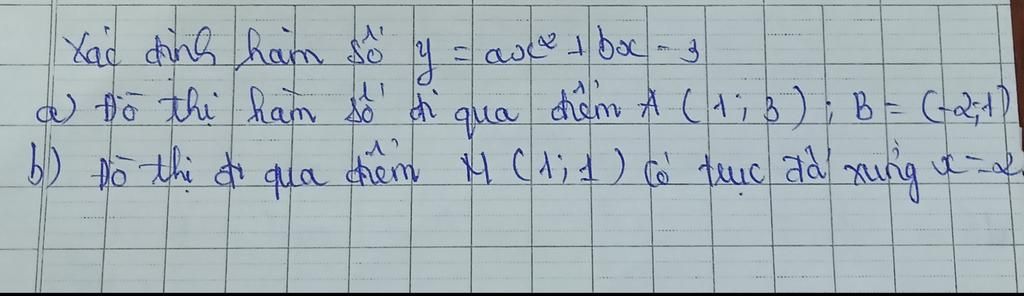 Xác định hàm số y = ax² + bx - 3
a) Đồ thị hàm số đi qua điểm A (1; 3); B = (-2; 1)
b) Đồ thị đi qua điểm M (1; 1) Có trục đối xứng x = 2